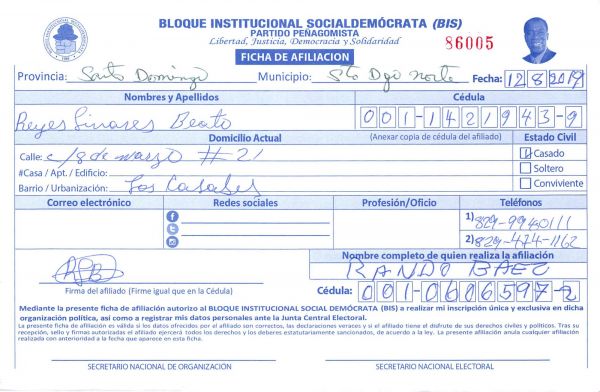 BLOQUE INSTITUCIONAL SOCIALDEMÓCRATA (BIS)
PARTIDO PEÑAGOMISTA
Libertad, Justicia, Democracia y Solidaridad
86005
FICHA DE AFILIACION
Provincia: Santo Domingo Municipio: Sto Dgo norte Fecha: 12/8/2019
Nombres y Apellidos Cédula
Reyes Linares Beato 001-1421943-9
Domicilio Actual (Anexar copia de cédula del afiliado) Estado Civil
Calle: c/8 de marzo #21 Casado
#Casa / Apt. / Edificio: Soltero
Barrio / Urbanización: Los Casabes Conviviente
Correo electrónico Redes sociales Profesión/Oficio Teléfonos
1) 829-9940111
2) 829-474-1162
Nombre completo de quien realiza la afiliación
RANDO BAEZ
Firma del afiliado (Firme igual que en la Cédula) Cédula: 001-0606597-2
Mediante la presente ficha de afiliación autorizo al BLOQUE INSTITUCIONAL SOCIAL DEMÓCRATA (BIS) a realizar mi inscripción única y exclusiva en dicha
organización política, así como a registrar mis datos personales ante la Junta Central Electoral.
La presente ficha de afiliación es válida si los datos ofrecidos por el afiliado son correctos, las declaraciones veraces y si el afiliado tiene el disfrute de sus derechos civiles y políticos. Tras su
recepción, sello y firmas autorizadas el afiliado ejercerá todos los derechos y los deberes estatutariamente sancionados, de acuerdo a la ley. La presente afiliación anula cualquier afiliación
realizada con anterioridad a la fecha que aparece en esta ficha.
SECRETARIO NACIONAL DE ORGANIZACIÓN SECRETARIO NACIONAL ELECTORAL